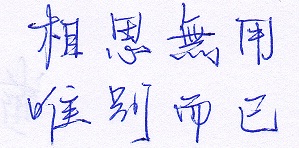 相思無用
唯別而已